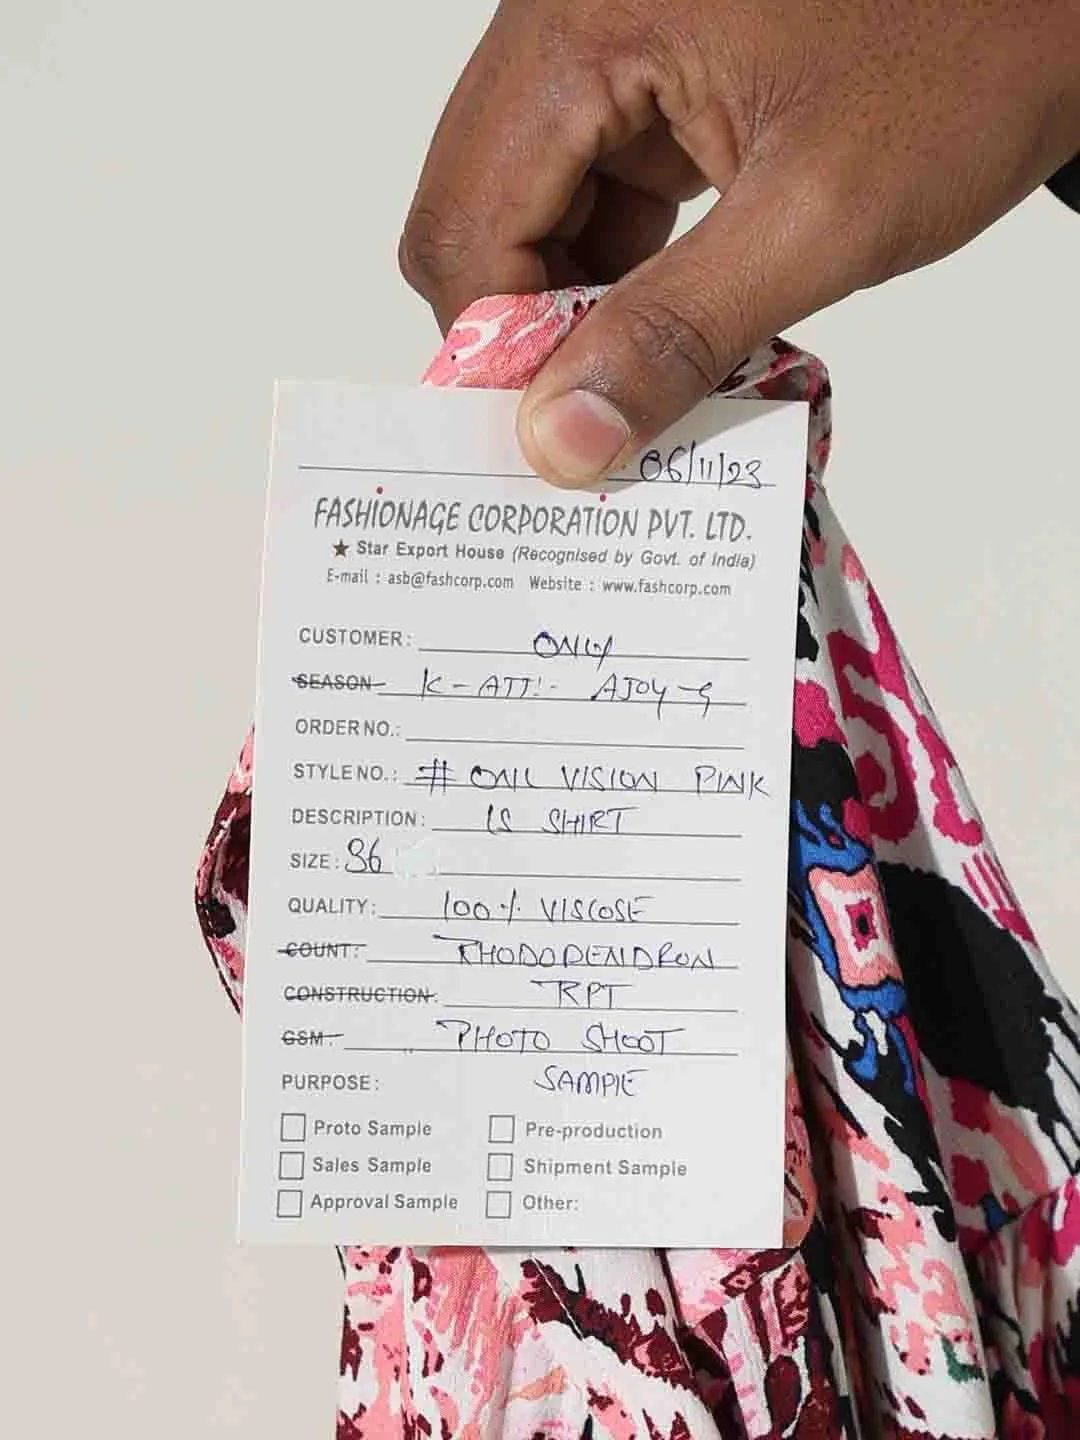 06/11/23
FASHIONAGE CORPORATION PVT. LTD.
★ Star Export House (Recognised by Govt. of India)
E-mail : asb@fashcorp.com Website : www.fashcorp.com
CUSTOMER: ONLY
SEASON K - ATT:- AJOY-G
ORDER NO.:
STYLE NO.: # ONL VISION PINK
DESCRIPTION: LS SHIRT
SIZE: 36
QUALITY: 100% VISCOSE
COUNT: RHODODENDRON
CONSTRUCTION: RPT
GSM: PHOTO SHOOT
PURPOSE: SAMPLE
Proto Sample Pre-production
Sales Sample Shipment Sample
Approval Sample Other: